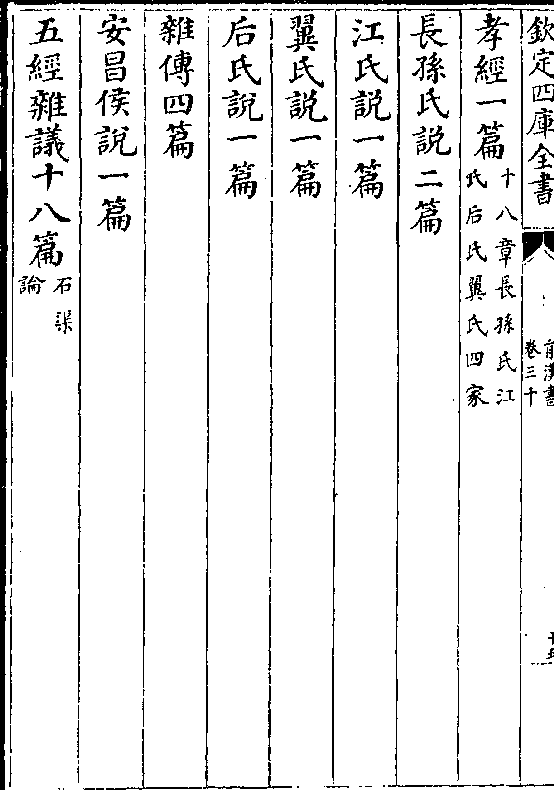 欽定四庫全書
前漢書
卷三十
孝經一篇十八章長孫氏江
氏后氏翼氏四家
長孫氏説二篇
江氏説一篇
翼氏説一篇
后氏説一篇
雜傳四篇
安昌侯説一篇
五經雜議十八篇石渠
論